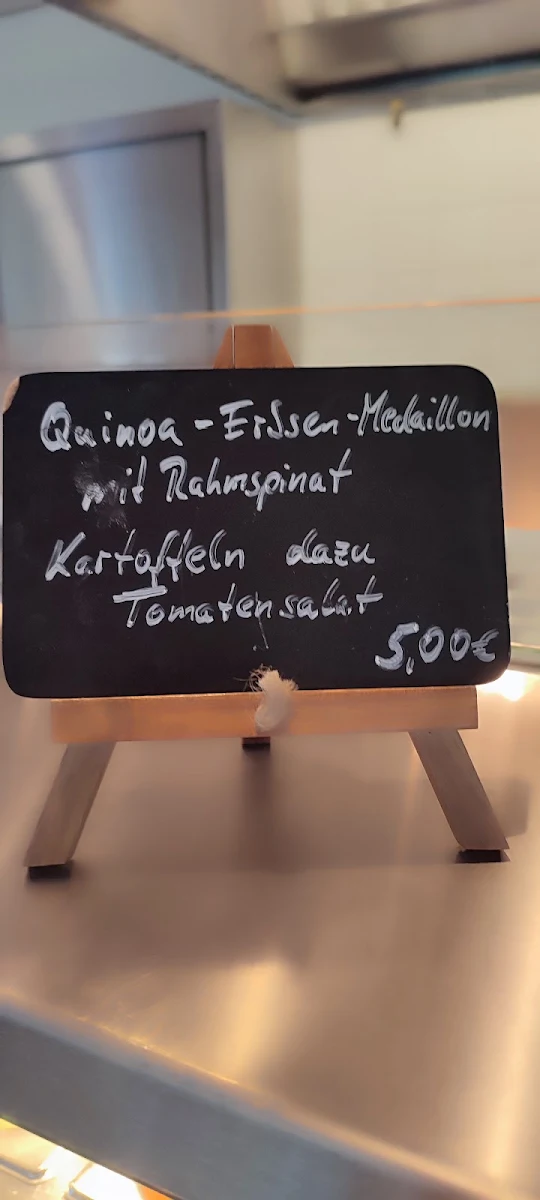 Quinoa-Erbsen-Medaillon
mit Rahmspinat
Kartoffeln dazu
Tomatensalat
5,00€